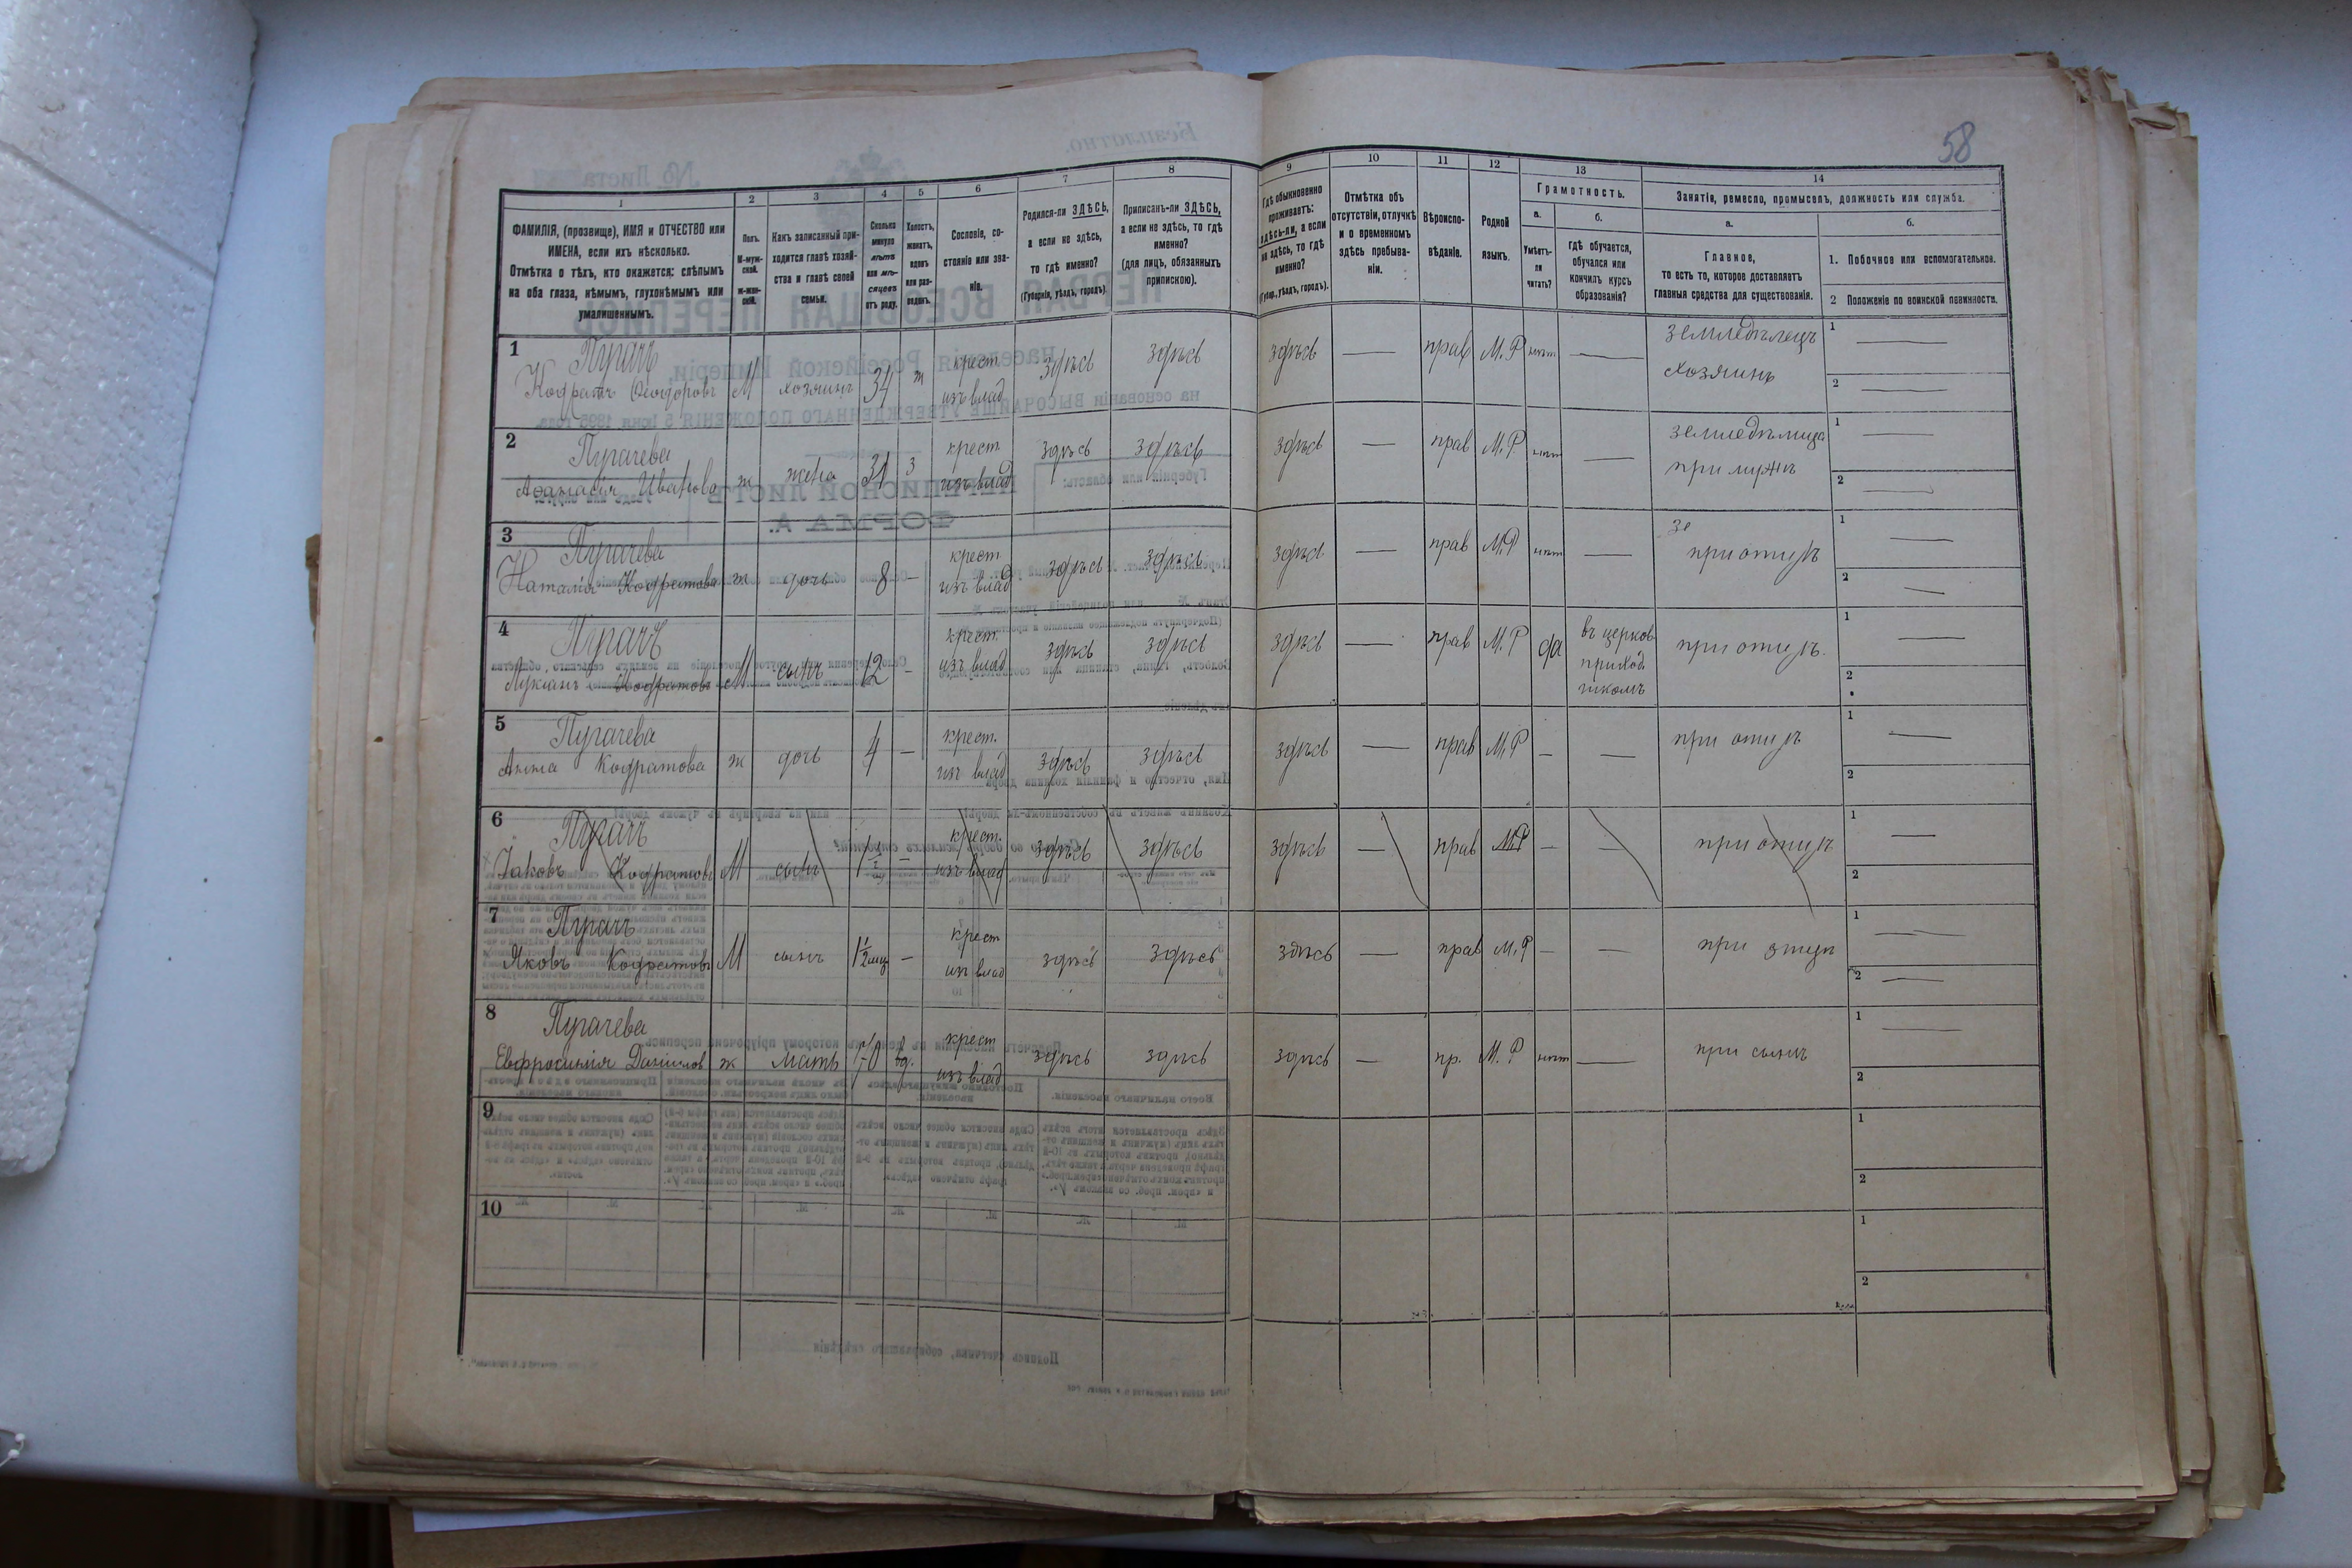 58
1 2 3 4 5 6 7 8 9 10 11 12 13 14
ФАМИЛІЯ, (прозвище), ИМЯ и ОТЧЕСТВО или
ИМЕНА, если ихъ нѣсколько.
Отмѣтка о тѣхъ, кто окажется: слѣпымъ
на оба глаза, нѣмымъ, глухонѣмымъ или
умалишеннымъ.
Полъ.
М-муж-
ской.
ж-жен-
скій.
Какъ записанный при-
ходится главѣ хозяй-
ства и главѣ своей
семьи.
Сколько
минуло
лѣтъ
или мѣ-
сяцевъ
отъ роду.
Холостъ,
женатъ,
вдовъ
или раз-
веденъ.
Сословіе, со-
стояніе или зва-
ніе.
Родился-ли ЗДѢСЬ,
а если не здѣсь,
то гдѣ именно?
(Губернія, уѣздъ, городъ)
Приписанъ-ли ЗДѢСЬ,
а если не здѣсь, то гдѣ
именно?
(для лицъ, обязанныхъ
припискою).
Гдѣ обыкновенно
проживаетъ:
здѣсь-ли, а если
не здѣсь, то гдѣ
именно?
(Губер., уѣздъ, городъ).
Отмѣтка объ
отсутствіи, отлучкѣ
и о временномъ
здѣсь пребыва-
ніи.
Вѣроиспо-
вѣданіе.
Родной
языкъ.
Грамотность.
а.
Умѣетъ-
ли
читать?
б.
гдѣ обучается,
обучался или
кончилъ курсъ
образованія?
Занятіе, ремесло, промыселъ, должность или служба.
а.
Главное,
то есть то, которое доставляетъ
главныя средства для существованія.
б.
1. Побочное или вспомогательное.
2 Положеніе по воинской повинности.
1 Пугачъ крест здѣсь здѣсь здѣсь — прав М.Р нѣт — земледѣлецъ 1 —
Кодратъ Ѳеодоровъ М хозяинъ 34 ж изъ влад хозяинъ 2 —
2 Пугачева крест здѣсь здѣсь здѣсь — прав М.Р нѣт — земледѣлица 1 —
Аѳанасія Иванова ж жена 31 з изъ влад при мужѣ 2 —
3 Пугачева крест здѣсь здѣсь здѣсь — прав М.Р нѣт — зе 1 —
Наталія Кодратова ж дочь 8 — изъ влад при отцѣ 2 —
4 Пугачъ крест. здѣсь здѣсь здѣсь — прав М.Р да въ церков при отцѣ. 1 —
Лукіанъ Кодратовъ М сынъ 12 — изъ влад приход 2
школѣ
5 Пугачева крест. здѣсь здѣсь здѣсь — прав М.Р — — при отцѣ 1 —
Анна Кодратова ж дочь 4 — изъ влад 2
6 Пугачъ крест. здѣсь здѣсь здѣсь — прав М.Р — — при отцѣ 1 —
Іаковъ Кодратовъ М сынъ 1 1/2 — изъ влад 2
7 Пугачъ крест здѣсь здѣсь здѣсь — прав М.Р — — при отцѣ 1 —
Яковъ Кодратовъ М сынъ 1 1/2 мѣс — изъ влад 2 —
8 Пугачева крест здѣсь здѣсь здѣсь — пр. М.Р нѣт — при сынѣ 1 —
Евфросинія Данилов ж мать 70 вд. изъ влад 2
9 1
2
10 1
2